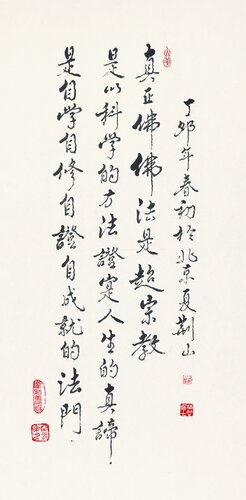 丁卯年春初於北京夏荆山
真正佛佛法是超宗教
是以科学的方法證寔人生的真諦.
是自学自修自證自成就的法門.